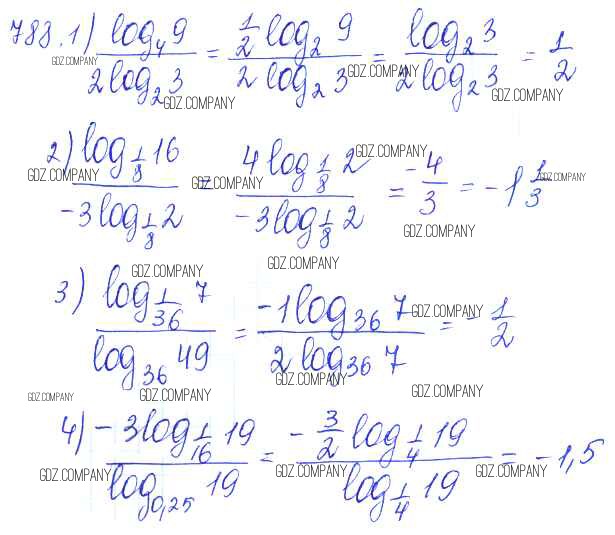 788. 1) log₄9 / 2log₂3 = ½log₂9 / 2log₂3 = log₂3 / 2log₂3 = 1/2
GDZ.COMPANY GDZ.COMPANY GDZ.COMPANY GDZ.COMPANY
2) log_{1/8}16 / -3log_{1/8}2 = 4log_{1/8}2 / -3log_{1/8}2 = -4/3 = -1 1/3
GDZ.COMPANY GDZ.COMPANY GDZ.COMPANY GDZ.COMPANY GDZ.COMPANY
GDZ.COMPANY GDZ.COMPANY
3) log_{1/36}7 / log₃₆49 = -1log₃₆7 / 2log₃₆7 = -1/2
GDZ.COMPANY GDZ.COMPANY
GDZ.COMPANY GDZ.COMPANY GDZ.COMPANY
4) -3log_{1/16}19 / log_{0,25}19 = -3/2 log_{1/4}19 / log_{1/4}19 = -1,5
GDZ.COMPANY GDZ.COMPANY GDZ.COMPANY